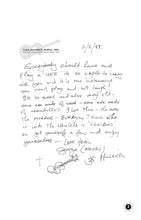 2/2/99.
Everybody should have and
play a UKE its so simple to carry
with you and it is one instrument
you can't play and not laugh!
Its so sweet and also very old-
some are made of wood - some are made
of armadillos. I love them - the more
the merrier - Everyone I know who
is into the Ukulele is 'crackers'
so get yourself a few and enjoy
yourselves — Love from
George (Keoki)
Harrison